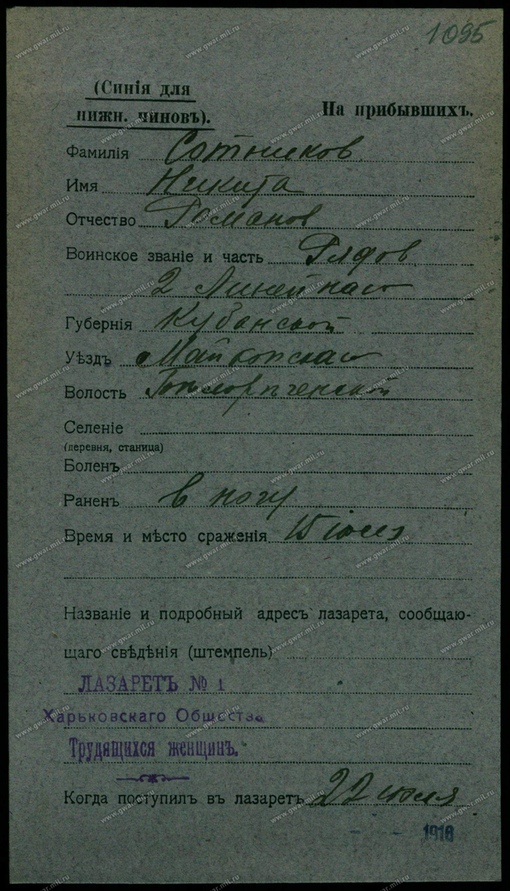 1095
(Синія для
нижн. чиновъ).
На прибывшихъ.
Фамилія Сотников
Имя Никита
Отчество Романов
Воинское званіе и часть Рядов
2 Линейнаго
Губерніи Кубанской
Уѣздъ Майкопскаго
Волость
Селеніе
(деревня, станица)
Боленъ
Раненъ в ногу
Время и мѣсто сраженія 15 июля
Названіе и подробный адресъ лазарета, сообщаю-
щаго свѣдѣнія (штемпель)
ЛАЗАРЕТЪ № 1
Харьковскаго Общества
Трудящихся женщин.
Когда поступилъ въ лазаретъ 22 июля
1916
www.gwar.mil.ru